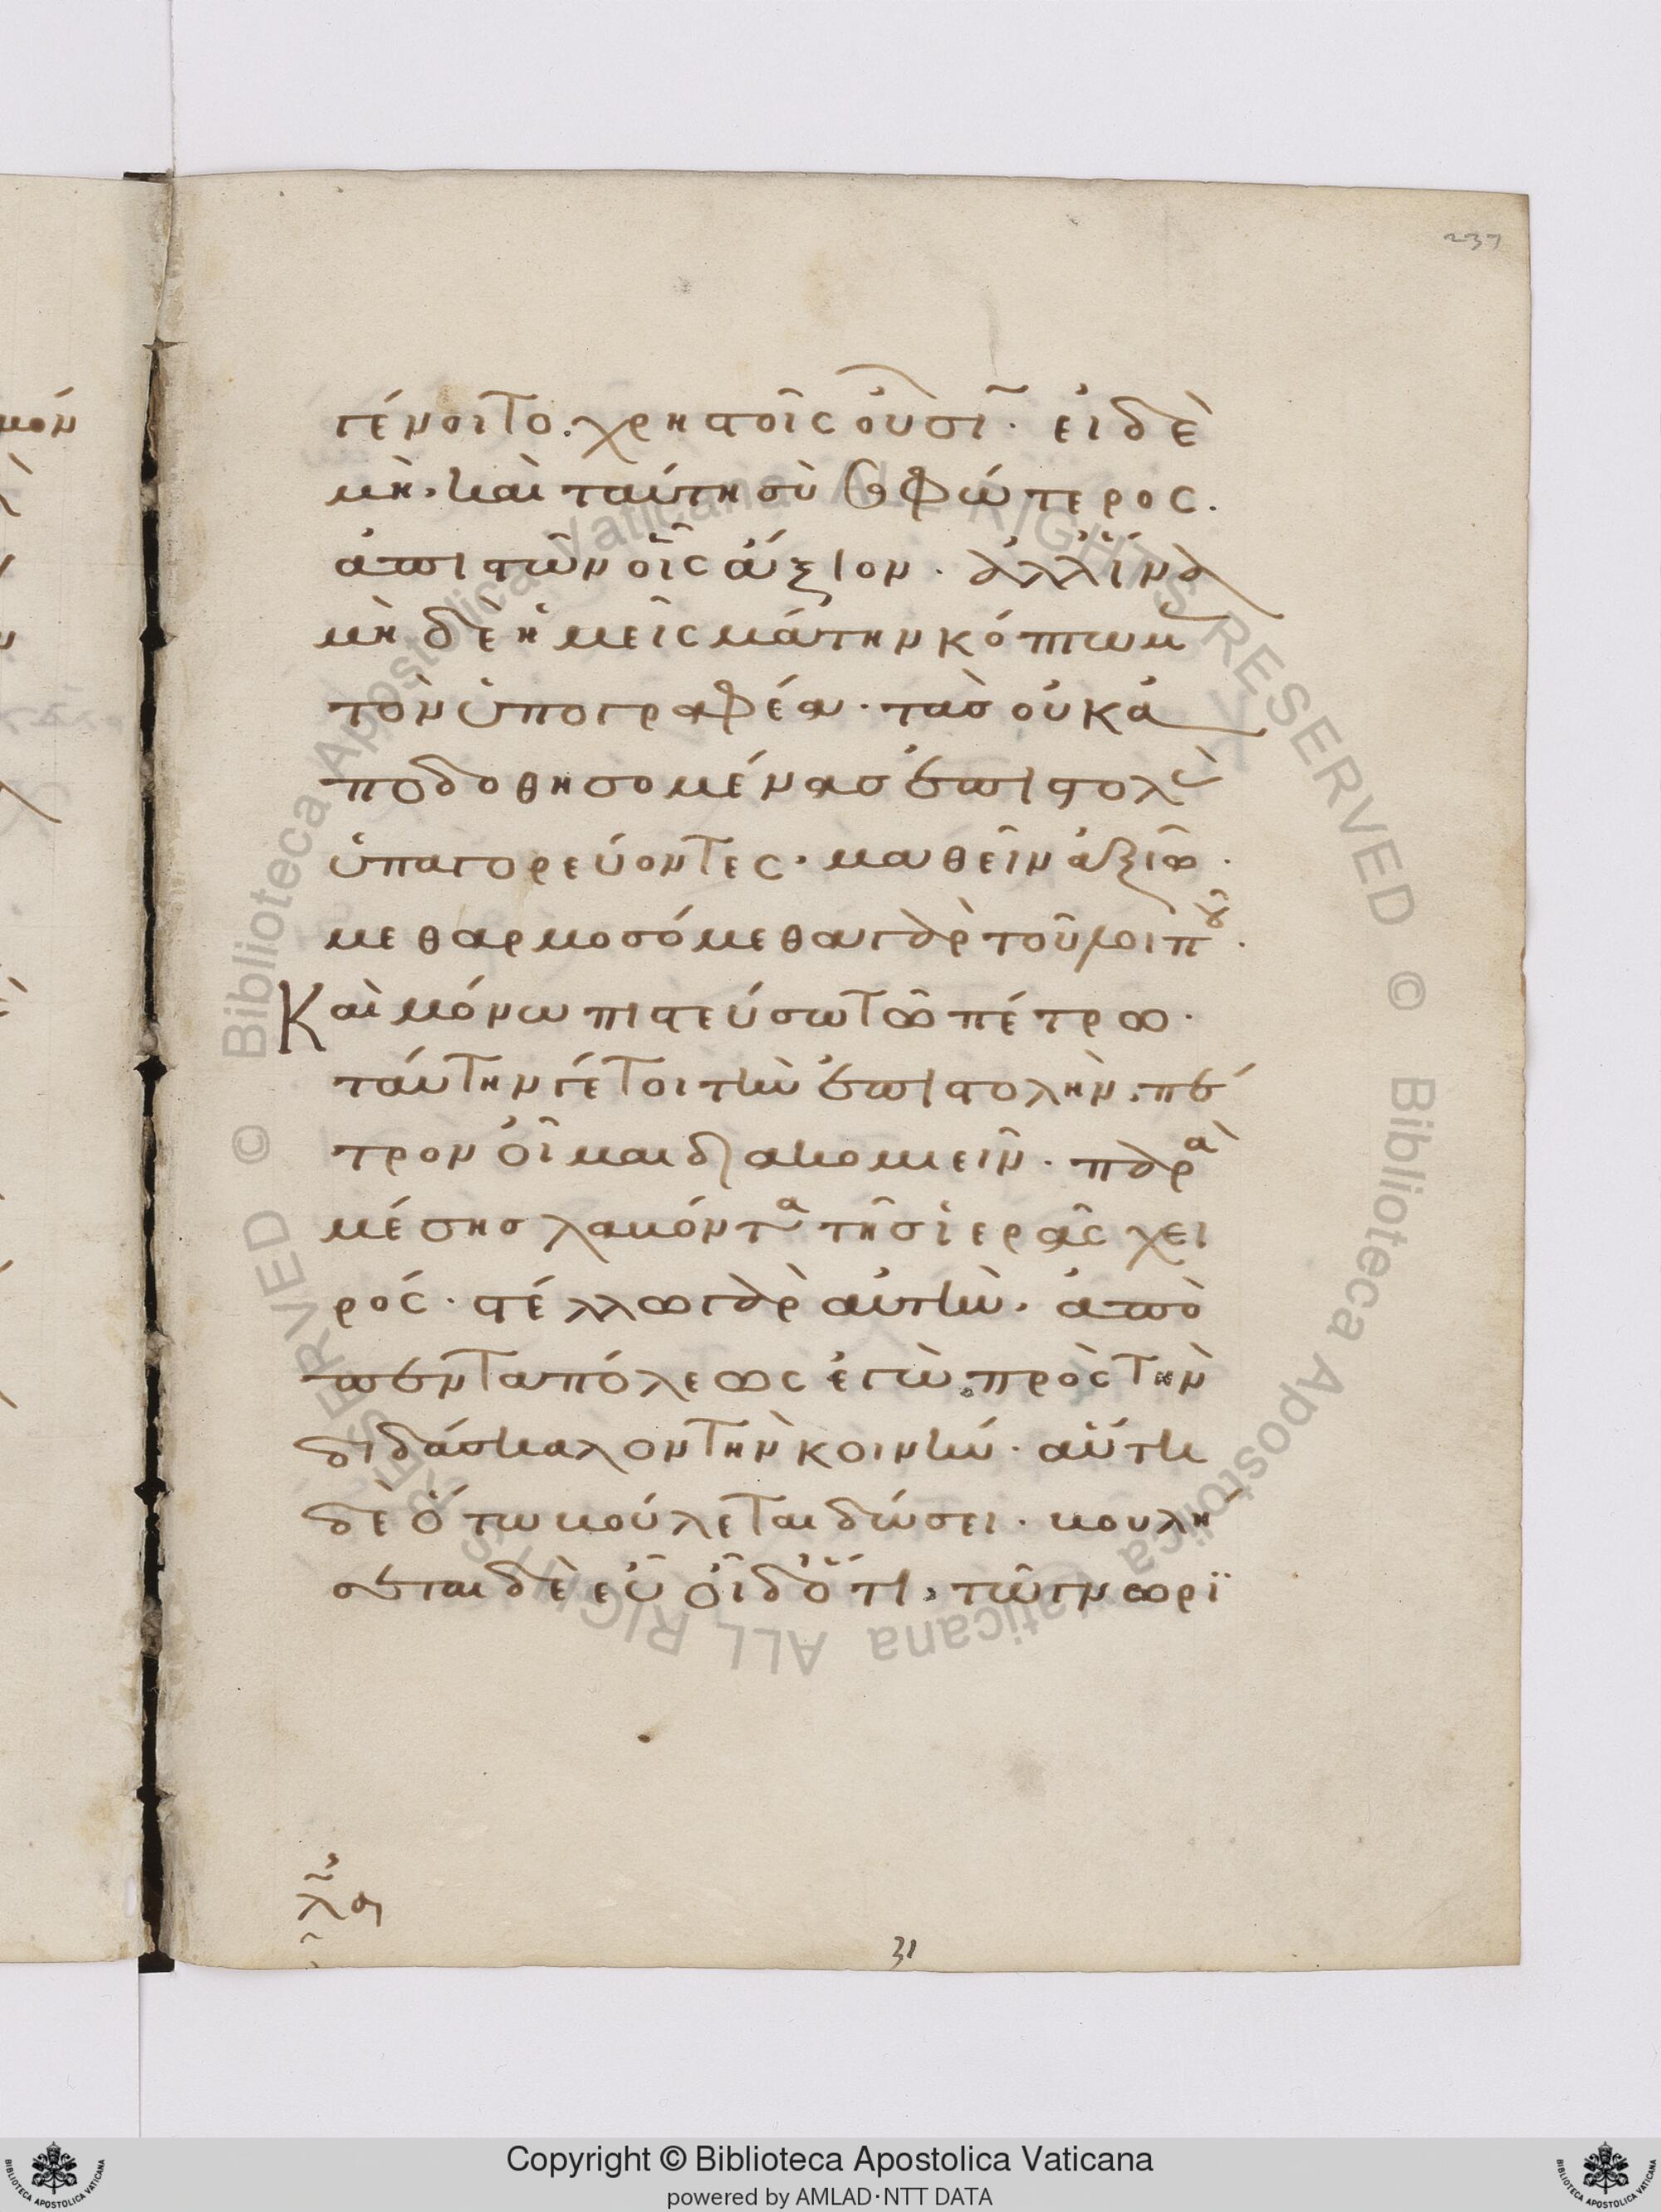 237
γένοιτο. χρηστοῖς οὖσι. εἰ δὲ
μὴ, καὶ ταύτη σὺ σοφώτερος.
ἀπιστῶν οἷς ἄξιον. ἀλλ' ἵνα
μὴ δὲ ἡμεῖς μάτην κόπτωμ
τὸν ὑπογραφέα. τὰσ οὐκ ἀ
ποδοθησομένασ ἐπιστολὰ
ὑπαγορεύοντες. μαθεῖν ἀξιῶ.
μεθαρμοσόμεθα γὰρ τοῦ λοιποῦ.
Καὶ μόνω πιστεύσω τῶ πέτρω.
ταύτην γέ τοι τὴν ἐπιστολὴν. πέ
τρον οἶμαι διακομιεῖν. παρὰ
μέσησ λαβόντα τῆσ ἱερᾶς χει
ρός. στέλλω γὰρ αὐτὴν. ἀπὸ
πενταπόλεως ἐγὼ πρὸς τὴν
διδάσκαλον τὴν κοινήν. αὕτη
δὲ ὅτω βούλεται δώσει. βουλή
σεται δὲ εὖ οἶδ' ὅτι, τῶ γνωρι
λα
31
Copyright © Biblioteca Apostolica Vaticana
powered by AMLAD·NTT DATA
© Biblioteca Apostolica Vaticana ALL RIGHTS RESERVED © Biblioteca Apostolica Vaticana ALL RIGHTS RESERVED